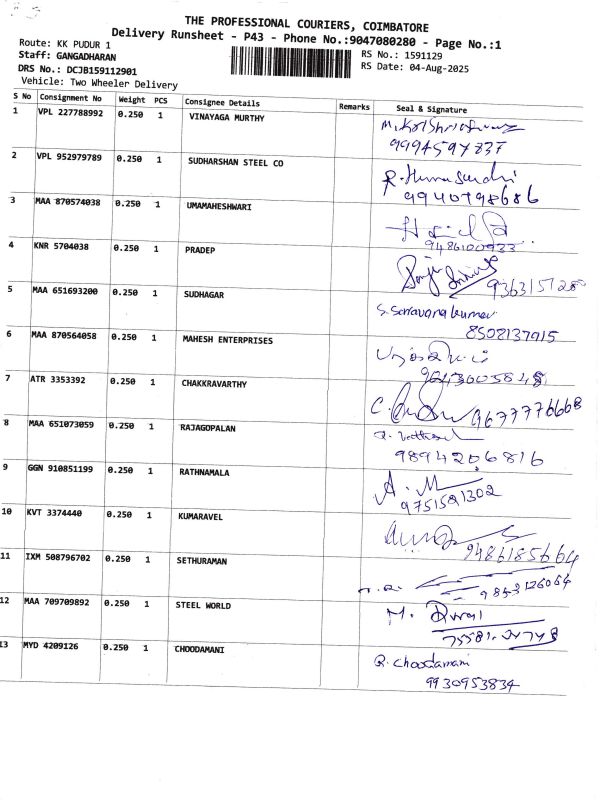 THE PROFESSIONAL COURIERS, COIMBATORE
Delivery Runsheet - P43 - Phone No.:9047080280 - Page No.:1
Route: KK PUDUR 1
RS No.: 1591129
Staff: GANGADHARAN
RS Date: 04-Aug-2025
DRS No.: DCJB159112901
Vehicle: Two Wheeler Delivery
S No Consignment No Weight PCS Consignee Details Remarks Seal & Signature
1 VPL 227788992 0.250 1 VINAYAGA MURTHY
9994597837
2 VPL 952979789 0.250 1 SUDHARSHAN STEEL CO
9940798686
3 MAA 870574038 0.250 1 UMAMAHESHWARI
9486100933
4 KNR 5704038 0.250 1 PRADEP
5 MAA 651693200 0.250 1 SUDHAGAR
S. Saravana kumar
8508137915
6 MAA 870564058 0.250 1 MAHESH ENTERPRISES
7 ATR 3353392 0.250 1 CHAKKRAVARTHY
9677776668
8 MAA 651073059 0.250 1 RAJAGOPALAN
9894206816
9 GGN 910851199 0.250 1 RATHNAMALA
A. M
9751521302
10 KVT 3374440 0.250 1 KUMARAVEL
9486185664
11 IXM 508796702 0.250 1 SETHURAMAN
9843126064
12 MAA 709709892 0.250 1 STEEL WORLD
M. Durai
13 MYD 4209126 0.250 1 CHOODAMANI
R. Choodamani
9930953834